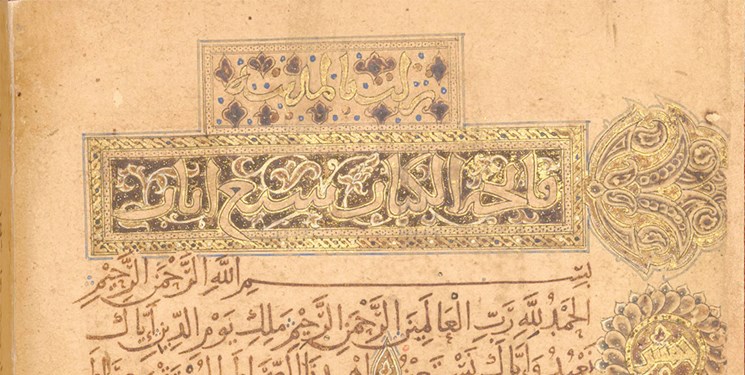 نزلت بالمدينة
فاتحة الكتاب سبع ايات
بِسْمِ اللَّهِ الرَّحْمَنِ الرَّحِيمِ
الْحَمْدُ لِلَّهِ رَبِّ الْعَالَمِينَ الرَّحْمَنِ الرَّحِيمِ مَلِكِ يَوْمِ الدِّينِ إِيَّاكَ
نَعْبُدُ وَإِيَّاكَ نَسْتَعِينُ اهْدِنَا الصِّرَاطَ الْمُسْتَقِيمَ